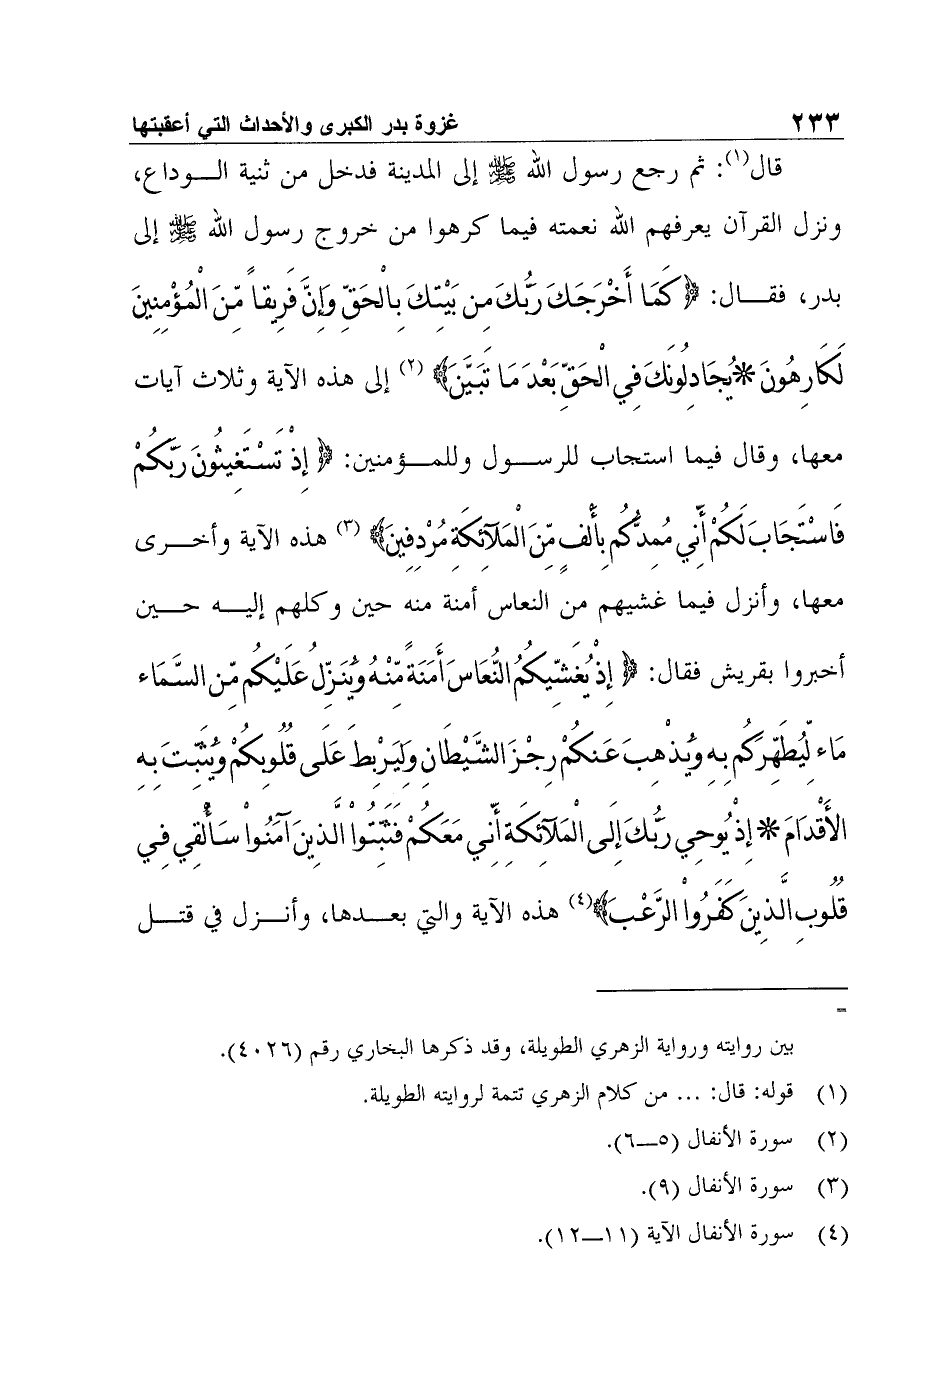 ٢٣٣ غزوة بدر الكبرى والأحداث التي أعقبتها
قال(١): ثم رجع رسول الله ﷺ إلى المدينة فدخل من ثنية الـــوداع،
ونزل القرآن يعرفهم الله نعمته فيما كرهوا من خروج رسول الله ﷺ إلى
بدر، فقـــال: ﴿كَمَا أَخْرَجَكَ رَبُّكَ مِن بَيْتِكَ بِالْحَقِّ وَإِنَّ فَرِيقاً مِّنَ الْمُؤْمِنِينَ
لَكَارِهُونَ * يُجَادِلُونَكَ فِي الْحَقِّ بَعْدَ مَا تَبَيَّنَ﴾(٢) إلى هذه الآية وثلاث آيات
معها، وقال فيما استجاب للرســـول وللمـــؤمنين: ﴿إِذْ تَسْتَغِيثُونَ رَبَّكُمْ
فَاسْتَجَابَ لَكُمْ أَنِّي مُمِدُّكُم بِأَلْفٍ مِّنَ الْمَلآئِكَةِ مُرْدِفِينَ﴾(٣) هذه الآية وأخـــرى
معها، وأنزل فيما غشيهم من النعاس أمنة منه حين وكلهم إليـــه حـــين
أخبروا بقريش فقال: ﴿إِذْ يُغَشِّيكُمُ النُّعَاسَ أَمَنَةً مِّنْهُ وَيُنَزِّلُ عَلَيْكُم مِّن السَّمَاء
مَاء لِّيُطَهِّرَكُم بِهِ وَيُذْهِبَ عَنكُمْ رِجْزَ الشَّيْطَانِ وَلِيَرْبِطَ عَلَى قُلُوبِكُمْ وَيُثَبِّتَ بِهِ
الأَقْدَامَ * إِذْ يُوحِي رَبُّكَ إِلَى الْمَلآئِكَةِ أَنِّي مَعَكُمْ فَثَبِّتُواْ الَّذِينَ آمَنُواْ سَأُلْقِي فِي
قُلُوبِ الَّذِينَ كَفَرُواْ الرَّعْبَ﴾(٤) هذه الآية والتي بعـــدها، وأنـــزل في قتـــل
=
بين روايته ورواية الزهري الطويلة، وقد ذكرها البخاري رقم (٤٠٢٦).
(١) قوله: قال: ... من كلام الزهري تتمة لروايته الطويلة.
(٢) سورة الأنفال (٥ــ٦).
(٣) سورة الأنفال (٩).
(٤) سورة الأنفال الآية (١١ــ١٢).